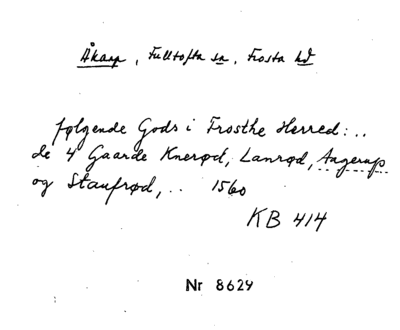 Åkarp, Fulltofta sn, Frosta hd
følgende Gods i Frosthe Herred:..
de 4 Gaarde Knerød, Lanrød, Aagerup
og Staufrød,.. 1560
KB 414
Nr 8629